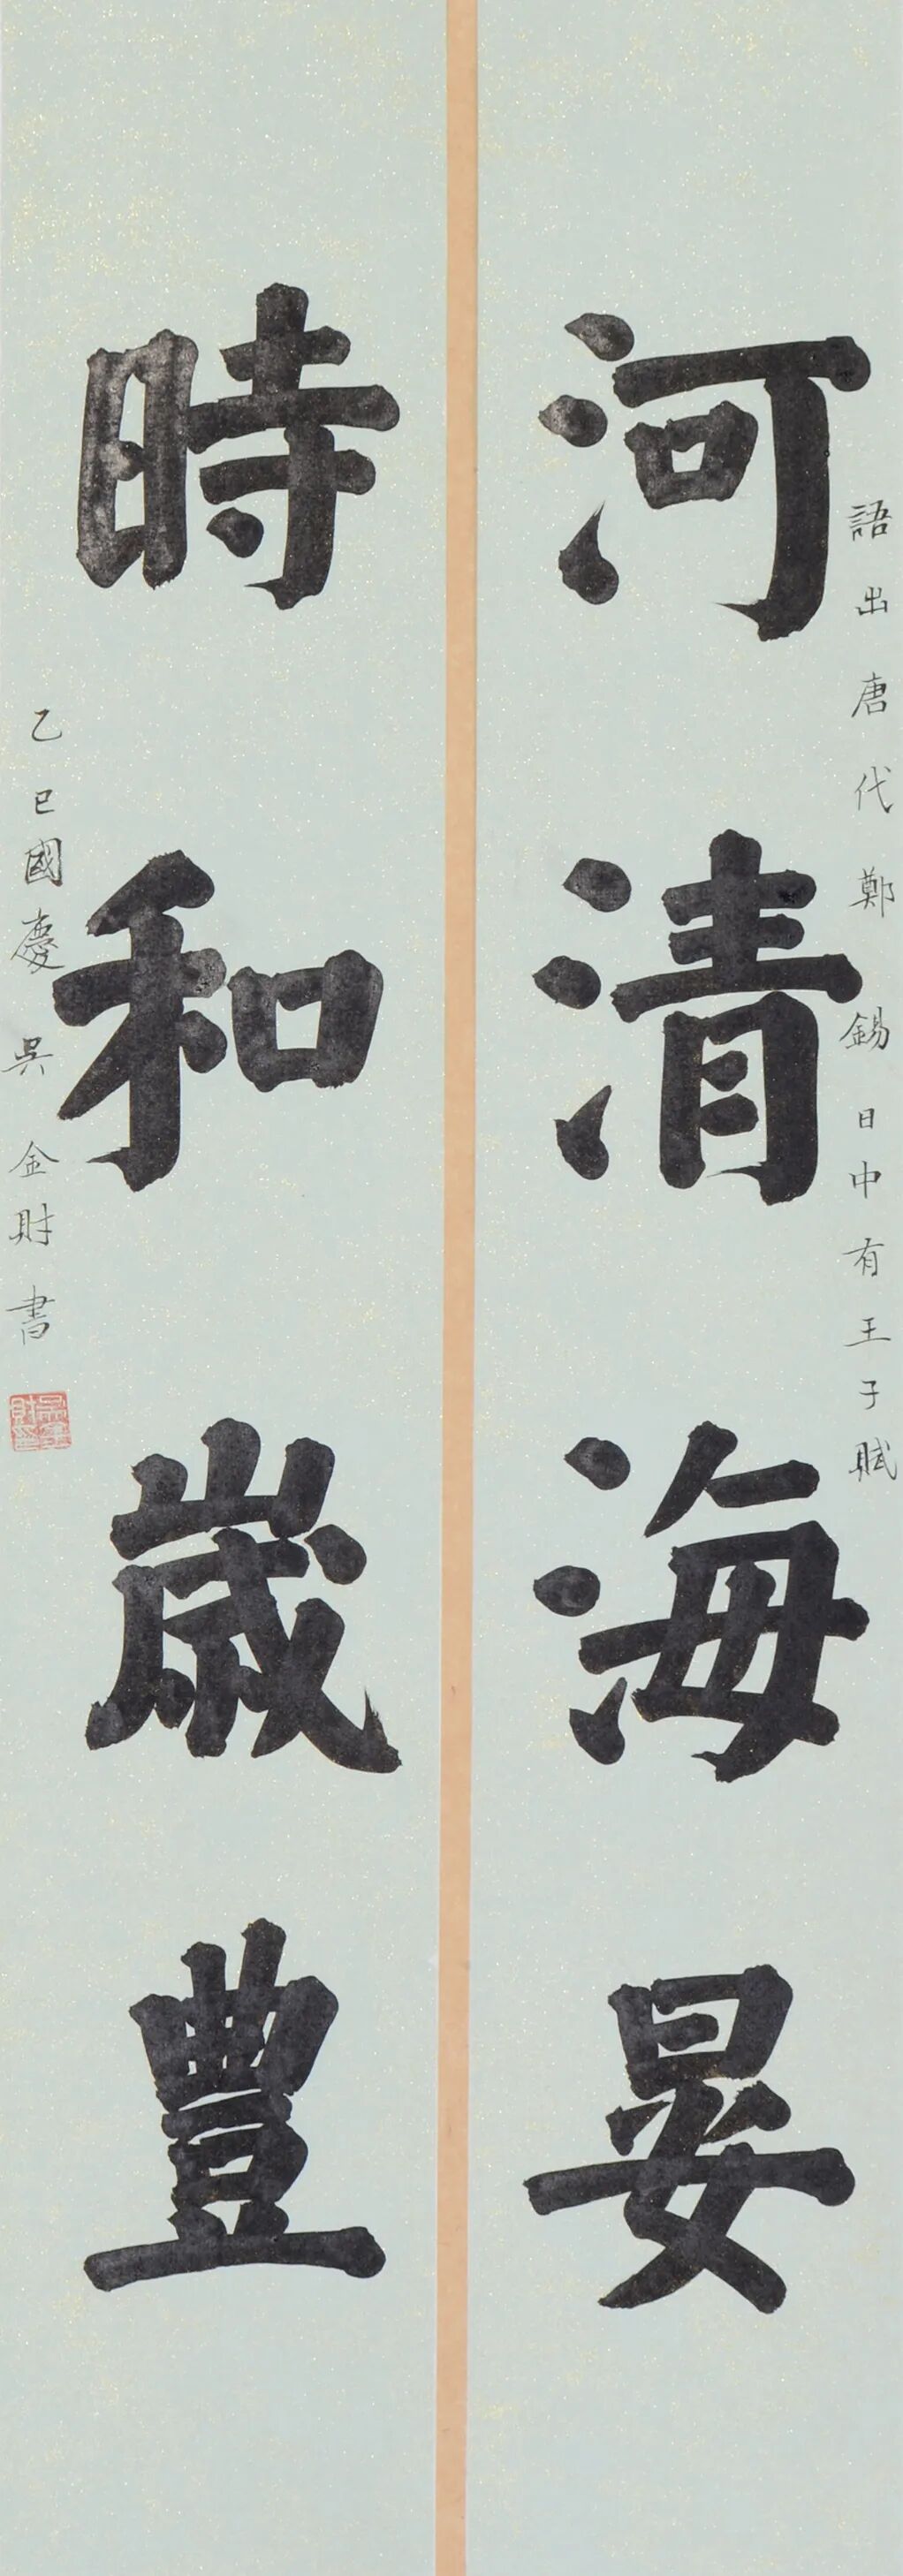 語出唐代鄭錫日中有王子賦
河清海晏
時和歲豐
乙巳國慶吳金財書
吳金財印